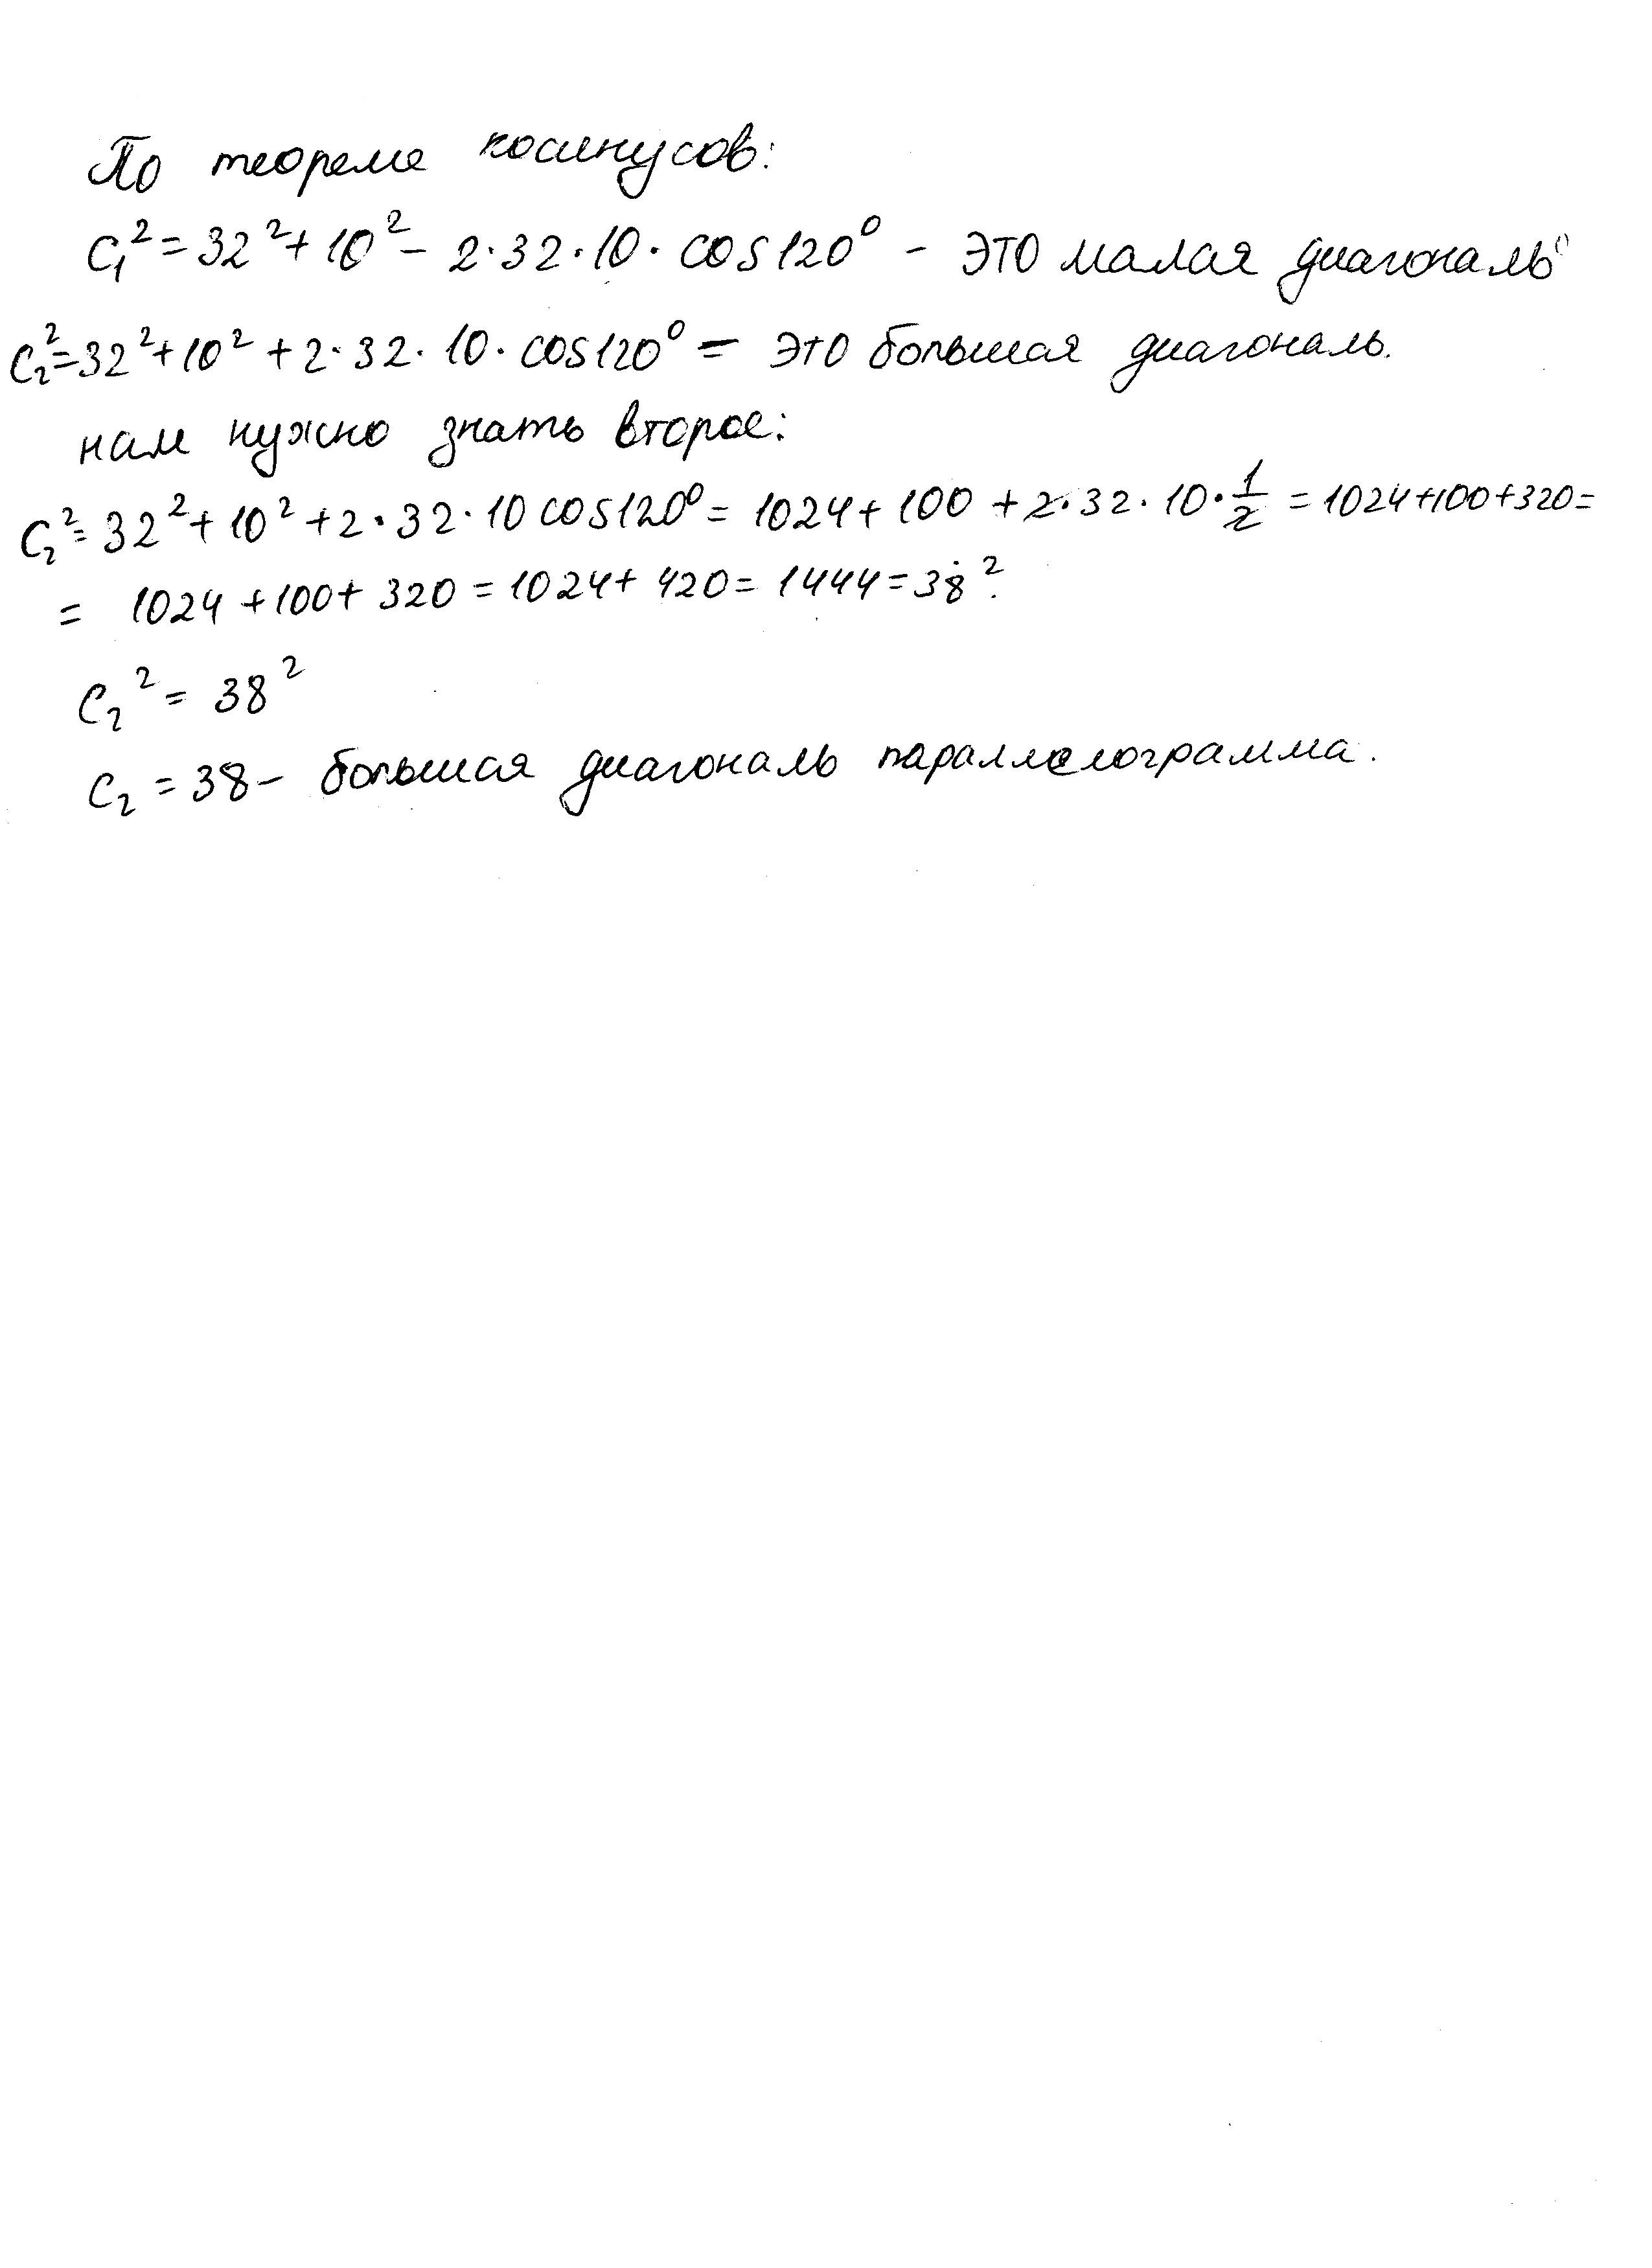 По теореме косинусов:
C₁² = 32² + 10² - 2·32·10·cos120° - это малая диагональ
C₂² = 32² + 10² + 2·32·10·cos120° - это большая диагональ.
нам нужно знать второе:
C₂² = 32² + 10² + 2·32·10 cos120° = 1024 + 100 + 2·32·10·1/2 = 1024+100+320=
= 1024 + 100 + 320 = 1024 + 420 = 1444 = 38².
C₂² = 38²
C₂ = 38 - большая диагональ параллелограмма.